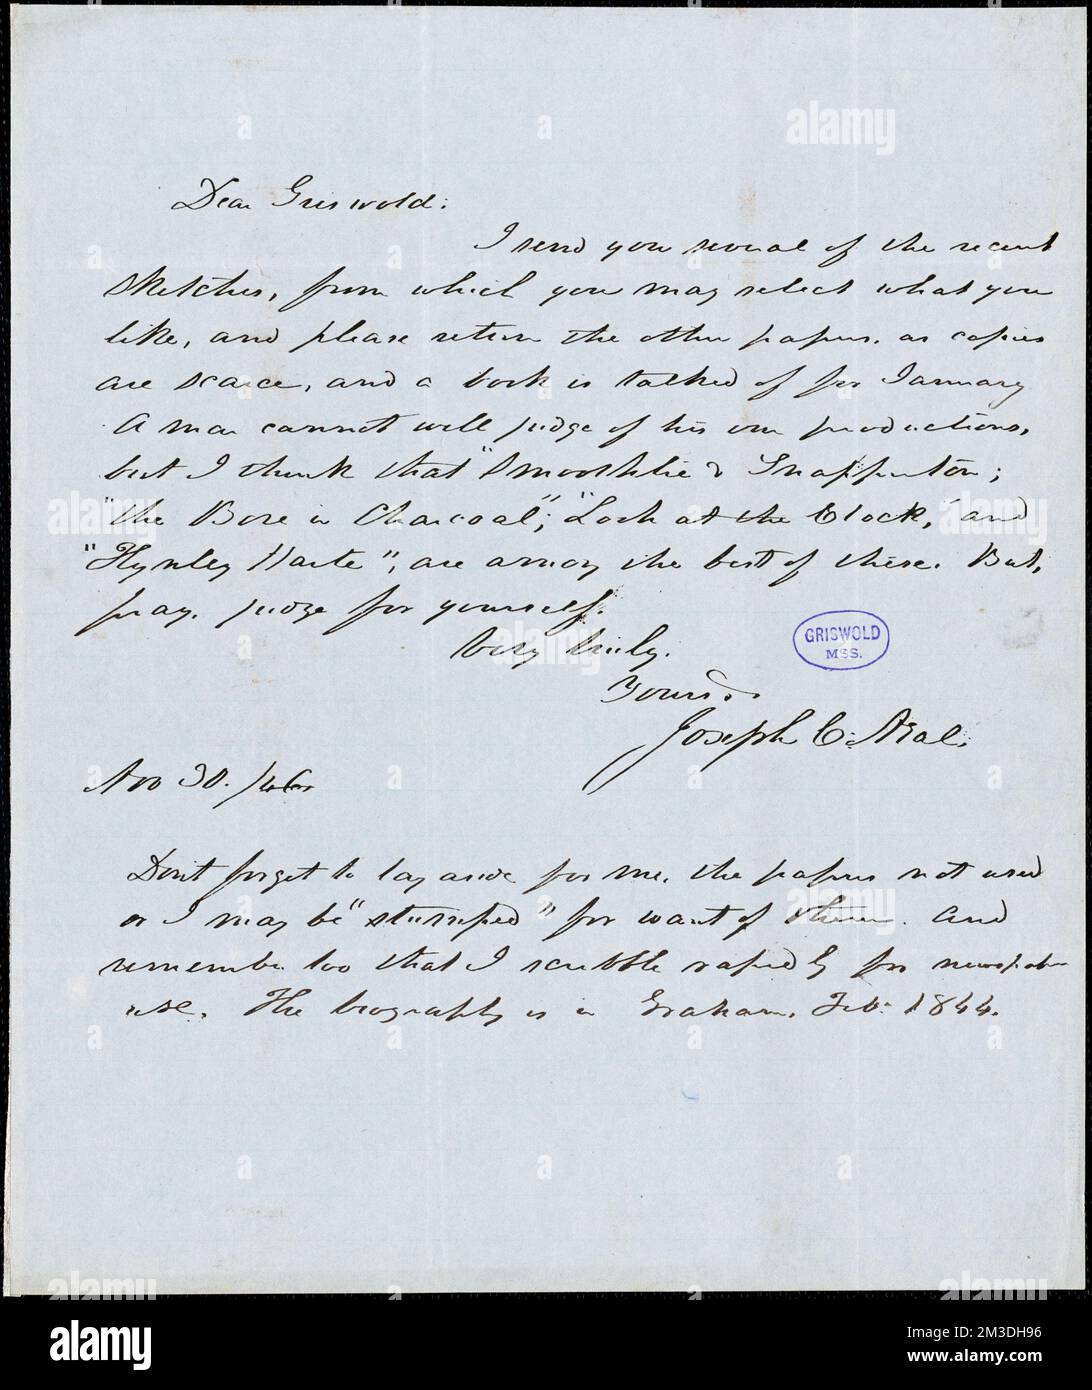 Dear Griswold:
I send you several of the recent
Sketches, from which you may select what you
like, and please return the other papers, as copies
are scarce, and a book is talked of for January
A man cannot well judge of his own productions,
but I think that "Smoothlie &
"the Bore in Charcoal"; "Look at the Clock," and
Harte", are among the best of these. But,
pray, judge for yourself.
Very truly,
Yours,
Joseph C. Neal.
GRISWOLD
MSS.
Nov 30. /46
Don't forget to lay aside for me, the papers not used
or I may be "stumped" for want of them. And
remember too that I scribble rapidly for newspaper
use. The biography is in Graham, Feb: 1844.
alamy
Image ID: 2M3DH96
www.alamy.com